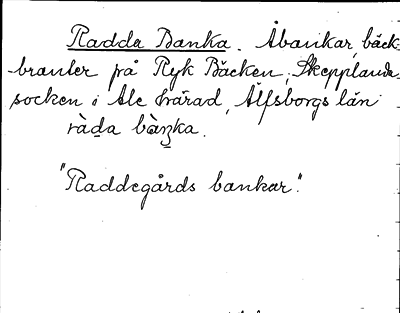 Radda Banka. Åbankar, bäck-
branter på Ryk Bäcken, Skepplanda
socken i Ale härad, Älfsborgs län
ràda bàŋka.
"Raddegårds bankar".